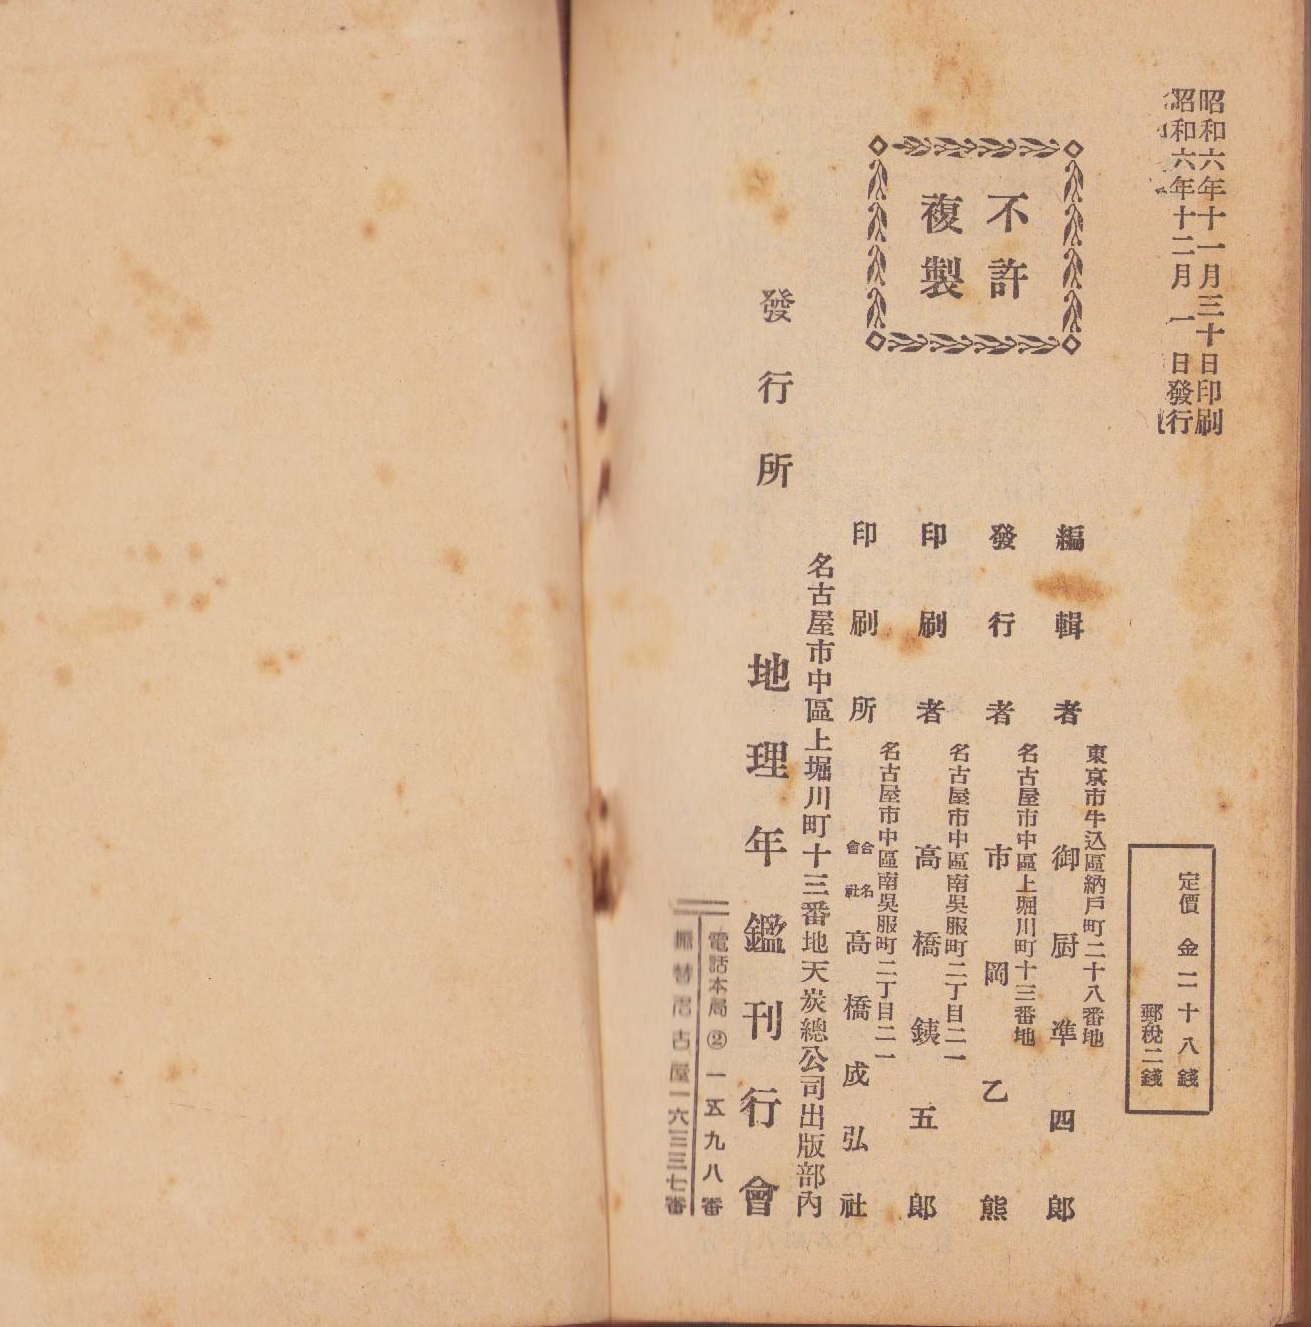 昭和六年十一月三十日印刷
昭和六年十二月一日發行
定價金二十八錢
郵稅二錢
不許
複製
東京市牛込區納戸町二十八番地
編輯者 御厨準四郎
名古屋市中區上堀川町十三番地
發行者 市岡乙熊
名古屋市中區南吳服町二丁目二一
印刷者 高橋銕五郎
名古屋市中區南吳服町二丁目二一
印刷所 合名會社 高橋成弘社
名古屋市中區上堀川町十三番地天炭總公司出版部內
發行所 地理年鑑刊行會
電話本局②一五九八番
振替名古屋一六三三七番